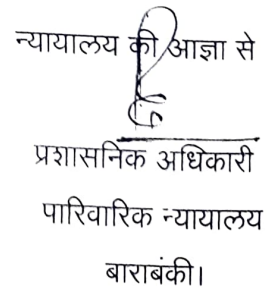 न्यायालय की आज्ञा से
प्रशासनिक अधिकारी
पारिवारिक न्यायालय
बाराबंकी।